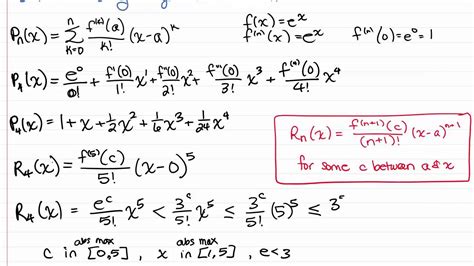 Pₙ(x) = Σ_{k=0}^{n} f⁽ᵏ⁾(a)/k! (x-a)ᵏ
f(x) = eˣ
f⁽ⁿ⁾(x) = eˣ
f⁽ⁿ⁾(0) = e⁰ = 1
P₄(x) = e⁰/0! + f'(0)/1! x¹ + f''(0)/2! x² + f'''(0)/3! x³ + f⁽⁴⁾(0)/4! x⁴
P₄(x) = 1 + x + 1/2 x² + 1/6 x³ + 1/24 x⁴
Rₙ(x) = f⁽ⁿ⁺¹⁾(c)/(n+1)! (x-a)ⁿ⁺¹
for some c between a & x
R₄(x) = f⁽⁵⁾(c)/5! (x-0)⁵
R₄(x) = eᶜ/5! x⁵ < 3ᶜ/5! x⁵ ≤ 3ᶜ/5! (5)⁵ ≤
abs max abs max
c in [0,5], x in [1,5], e<3